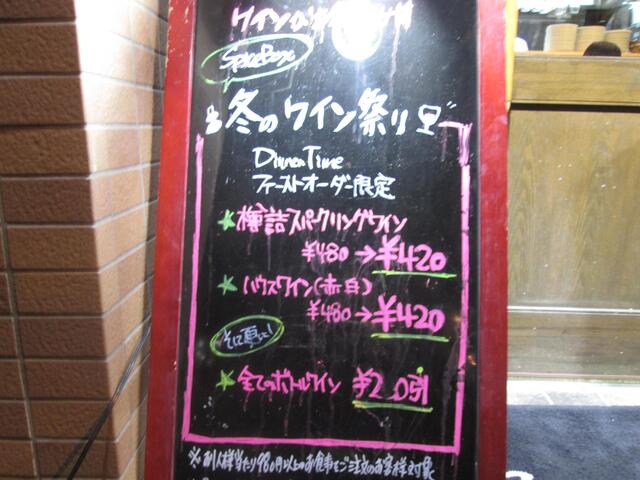 冬のワイン祭り
Dinner Time
ファーストオーダー限定
樽詰スパークリングワイン
¥480→¥420
ハウスワイン(赤・白)
¥480→¥420
そして更に!
全てのボトルワイン ¥2.0引
※お1人様当たり980円以上のお食事をご注文のお客様対象